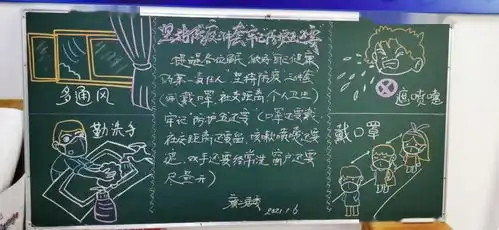 坚持防疫三件套牢记防护五还要
提醒各位师、做好自己健康
防第一责任人、坚持防疫三件套
(即戴口罩 社交距离 个人卫生)
牢记"防护五还要"(口罩还要戴
社交距离还要留、咳嗽喷嚏还要
遮、双手还要经常洗 窗户还要
尽量开)
2021.1.6
多通风
遮喷嚏
勤洗手
戴口罩